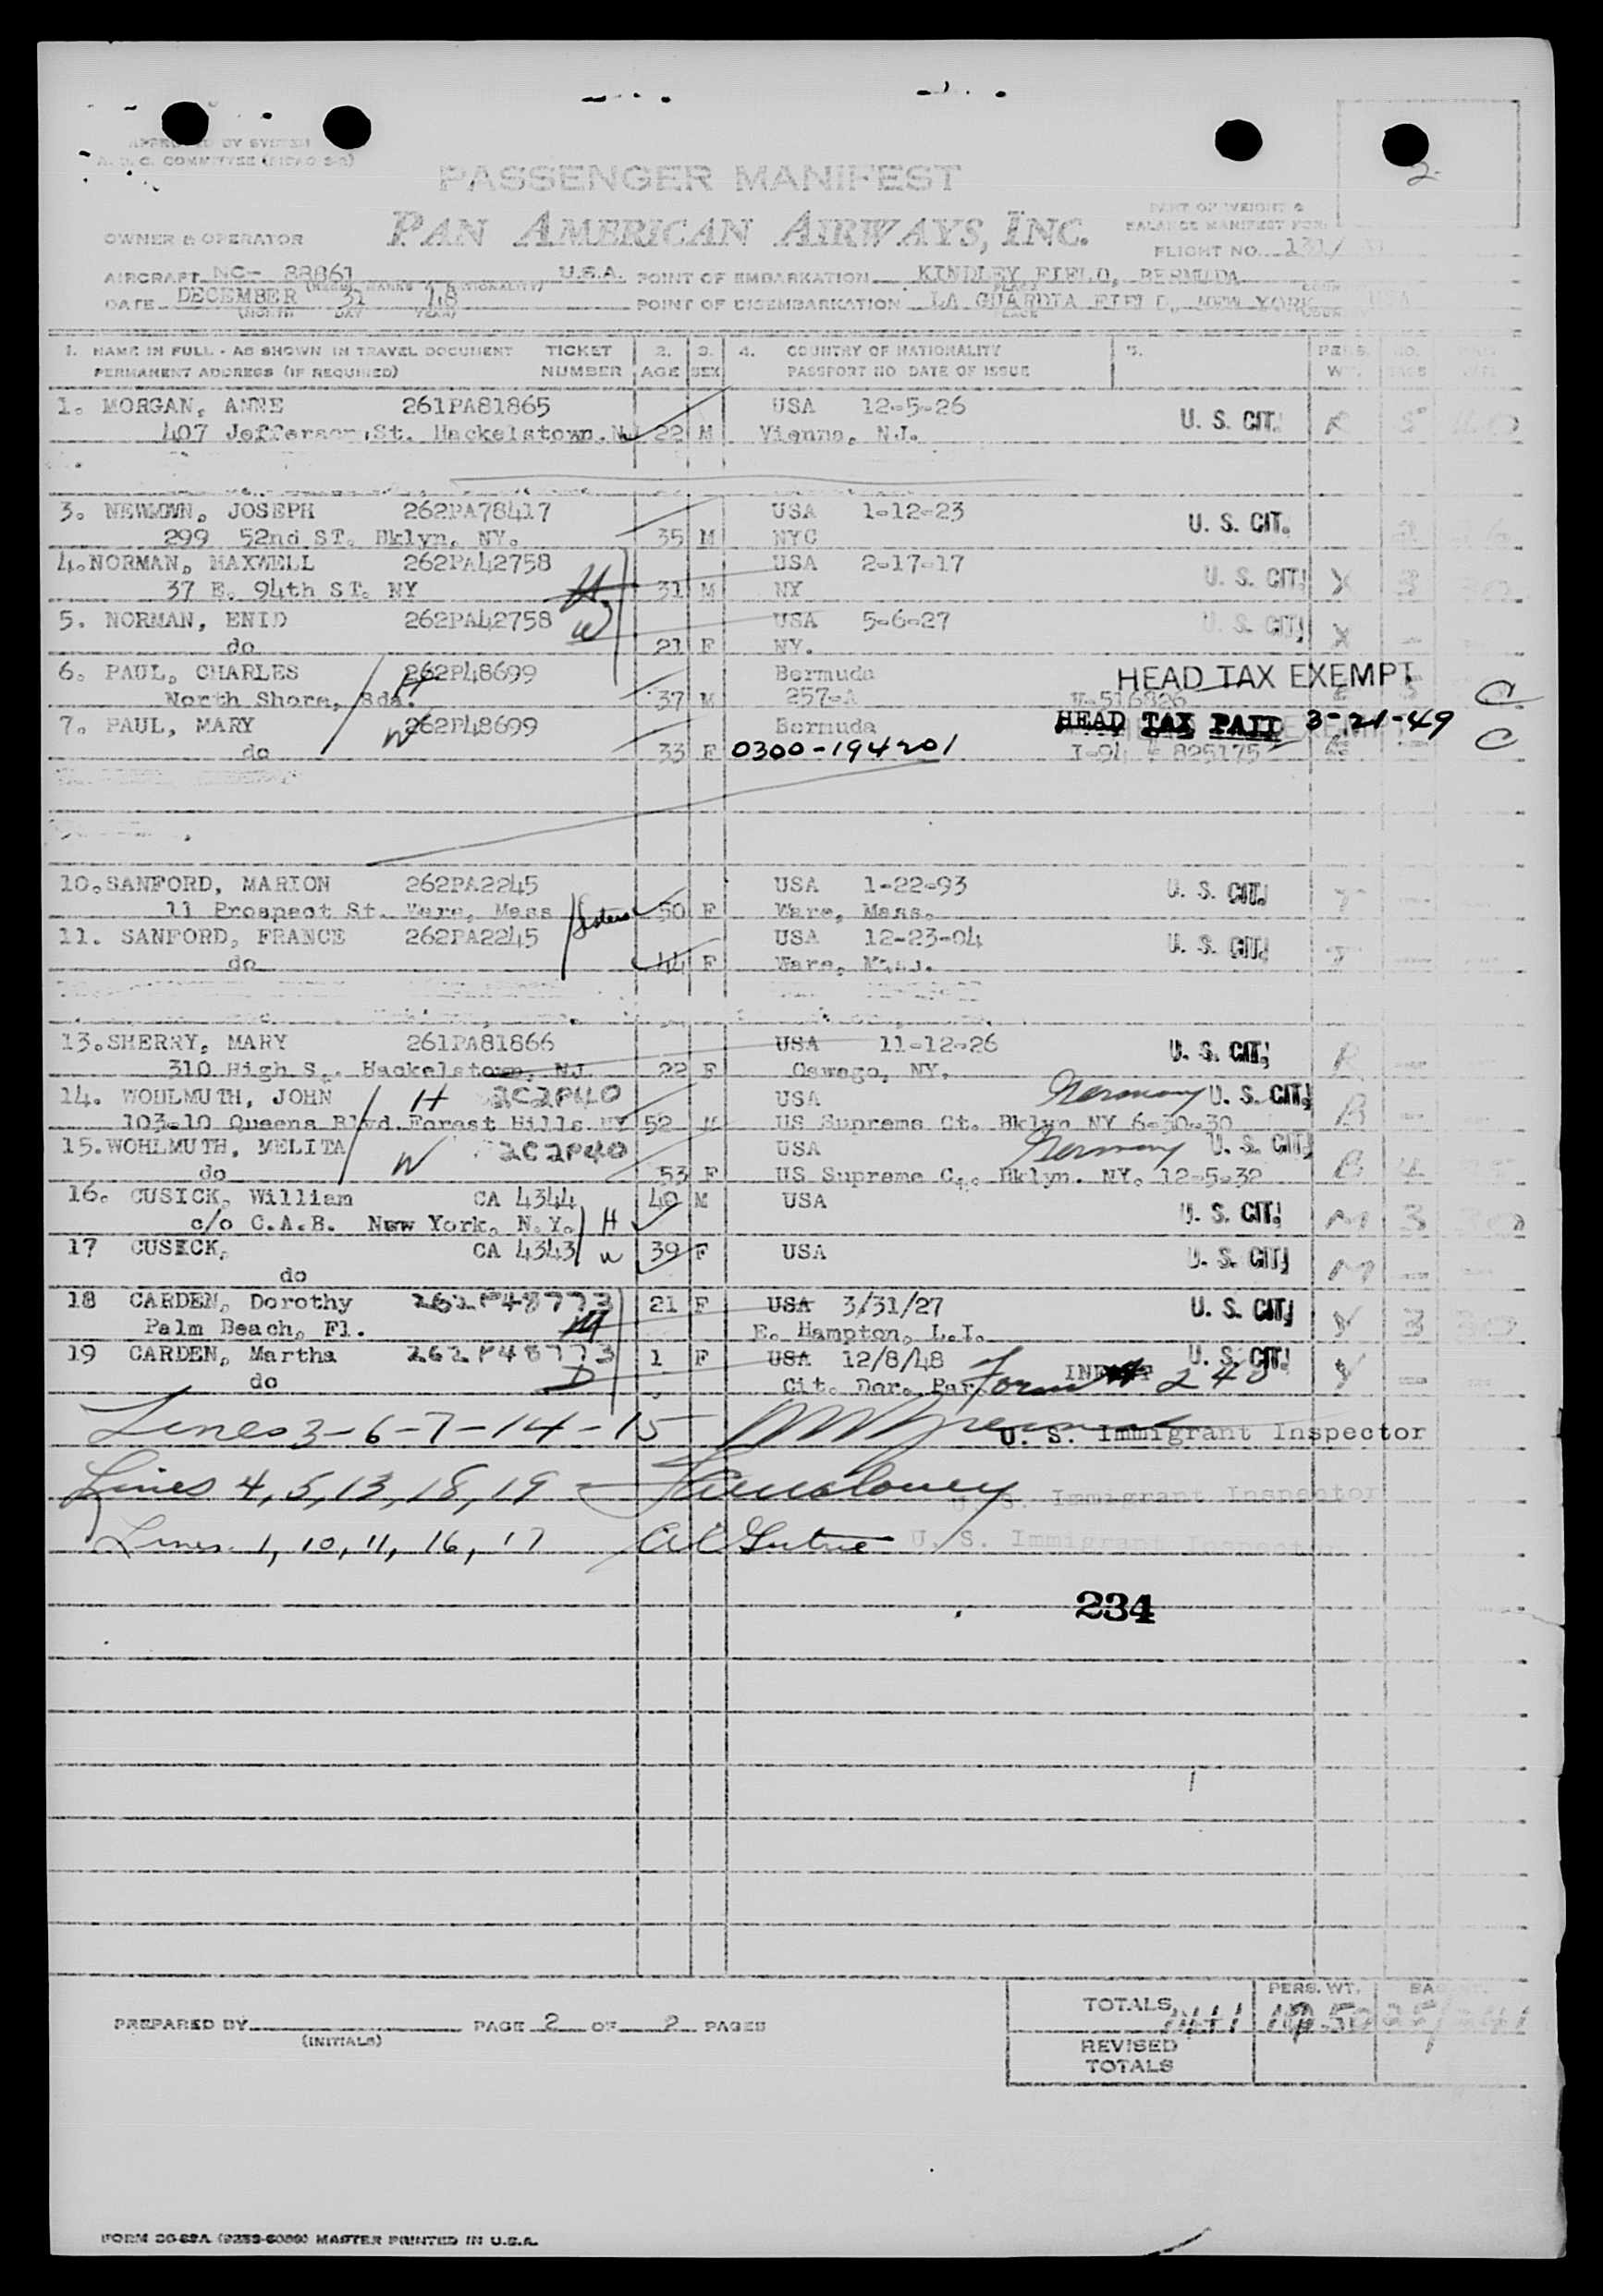 APPROVED BY SYSTEM
2
PASSENGER MANIFEST
PAN AMERICAN AIRWAYS, INC.
PART OF WEIGHT &
BALANCE MANIFEST FOR:
OWNER & OPERATOR
FLIGHT NO. 131/
AIRCRAFT NC- 88861 U.S.A. POINT OF EMBARKATION KINDLEY FIELD, BERMUDA
DATE DECEMBER 31 48 POINT OF DISEMBARKATION LA GUARDIA FIELD, NEW YORK USA
(MONTH DAY YEAR) PLACE
1. NAME IN FULL - AS SHOWN IN TRAVEL DOCUMENT TICKET 2. 3. 4. COUNTRY OF NATIONALITY 5. PERS. NO.
PERMANENT ADDRESS (IF REQUIRED) NUMBER AGE SEX PASSPORT NO DATE OF ISSUE WT.
1. MORGAN, ANNE 261PA81865 USA 12-5-26 U. S. CIT. R 5
407 Jefferson St. Hackelstown, N 22 M Vienna, N.J.
3. NEWMOWN, JOSEPH 262PA78417 USA 1-12-23 U. S. CIT.
299 52nd ST. Bklyn, NY. 35 M NYC
4. NORMAN, MAXWELL 262PA42758 USA 2-17-17 U. S. CIT. X 3
37 E. 94th ST. NY H 31 M NY
5. NORMAN, ENID 262PA42758 W USA 5-6-27 U. S. CIT. X -
do 21 F NY.
6. PAUL, CHARLES H 262P48699 Bermuda HEAD TAX EXEMPT
North Shore, Bda. 37 M 257-A C
7. PAUL, MARY W 262P48699 Bermuda HEAD TAX PAID 3-21-49
do 33 F 0300-194201 I-94 # 825175 C
10. SANFORD, MARION 262PA2245 USA 1-22-93 U. S. CIT.
11 Prospect St. Ware, Mass Sisters 50 F Ware, Mass.
11. SANFORD, FRANCE 262PA2245 USA 12-23-04 U. S. CIT.
do 44 F Ware, Mass.
13. SHERRY, MARY 261PA81866 USA 11-12-26 U. S. CIT. R -
310 High S. Hackelstown, NJ 22 F Oswego, NY.
14. WOHLMUTH, JOHN H 262P40 USA Germany U. S. CIT. B -
103-10 Queens Blvd. Forest Hills NY 52 M US Supreme Ct. Bklyn NY 6-30-30
15. WOHLMUTH, MELITA W 262P40 USA Germany U. S. CIT. B 4
do 53 F US Supreme C. Bklyn. NY. 12-5-32
16. CUSICK, William CA 4344 40 M USA U. S. CIT. M 3 30
c/o C.A.B. New York, N.Y. H
17 CUSICK, CA 4343 W 39 F USA U. S. CIT. M -
do
18 CARDEN, Dorothy 262P48773 21 F USA 3/31/27 U. S. CIT. Y 3 30
Palm Beach, Fl. M E. Hampton, L.I.
19 CARDEN, Martha 262P48773 1 F USA 12/8/48 U. S. CIT. Y -
do D Cit. Der. Par. Form 240
Lines 3-6-7-14-15 U. S. Immigrant Inspector
Lines 4, 5, 13, 18, 19 - U. S. Immigrant Inspector
Lines 1, 10, 11, 16, 17 U. S. Immigrant Inspector
234
PREPARED BY (INITIALS) PAGE 2 OF 2 PAGES
PERS. WT.
TOTALS
REVISED
TOTALS
FORM MASTER PRINTED IN U.S.A.